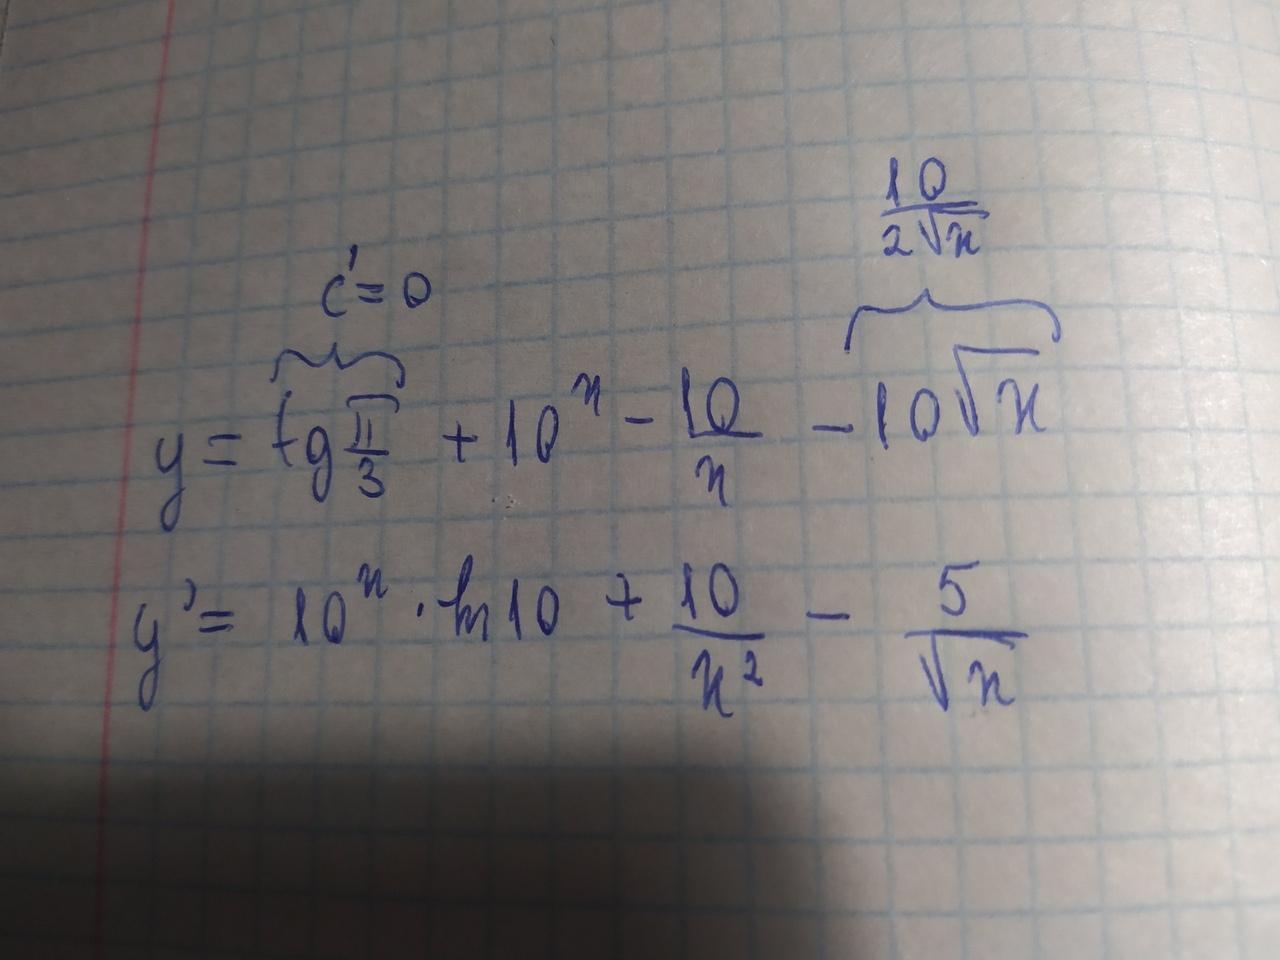 10/(2√x)
c' = 0
y = tg π/3 + 10^x - 10/x - 10√x
y' = 10^x · ln 10 + 10/x² - 5/√x